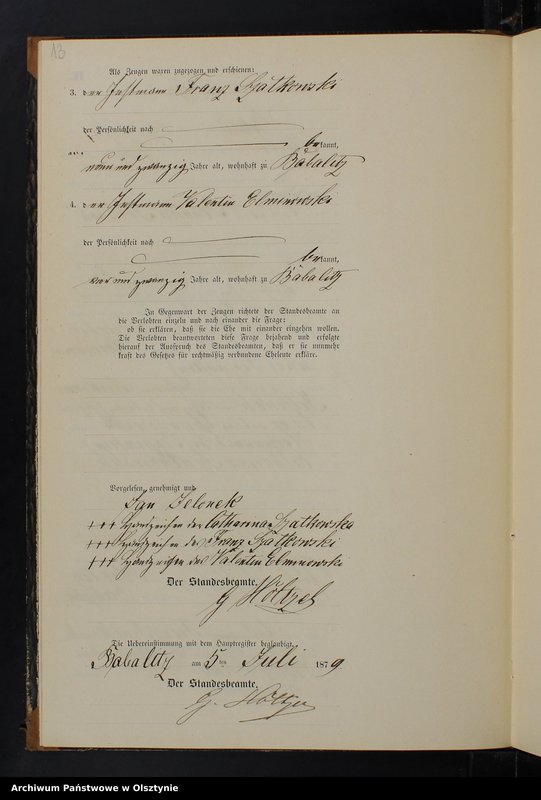 13
Als Zeugen waren zugezogen und erschienen:
3. der Instmann Franz Szatkowski
der Persönlichkeit nach
bekannt,
neun und zwanzig Jahre alt, wohnhaft zu Babalitz
4. der Instmann Valentin Elminowski
der Persönlichkeit nach
bekannt,
vier und zwanzig Jahre alt, wohnhaft zu Babalitz
In Gegenwart der Zeugen richtete der Standesbeamte an
die Verlobten einzeln und nach einander die Frage:
ob sie erklären, daß sie die Ehe mit einander eingehen wollen.
Die Verlobten beantworteten diese Frage bejahend und erfolgte
hierauf der Ausspruch des Standesbeamten, daß er sie nunmehr
kraft des Gesetzes für rechtmäßig verbundene Eheleute erkläre.
Vorgelesen, genehmigt und
Jan Jelonek
+++ Handzeichen der Catharina Szatkowska
+++ Handzeichen des Franz Szatkowski
+++ Handzeichen des Valentin Elminowski
Der Standesbeamte,
G Höltzel
Die Uebereinstimmung mit dem Hauptregister beglaubigt,
Babalitz am 5ten Juli 1879
Der Standesbeamte,
G.
Archiwum Państwowe w Olsztynie